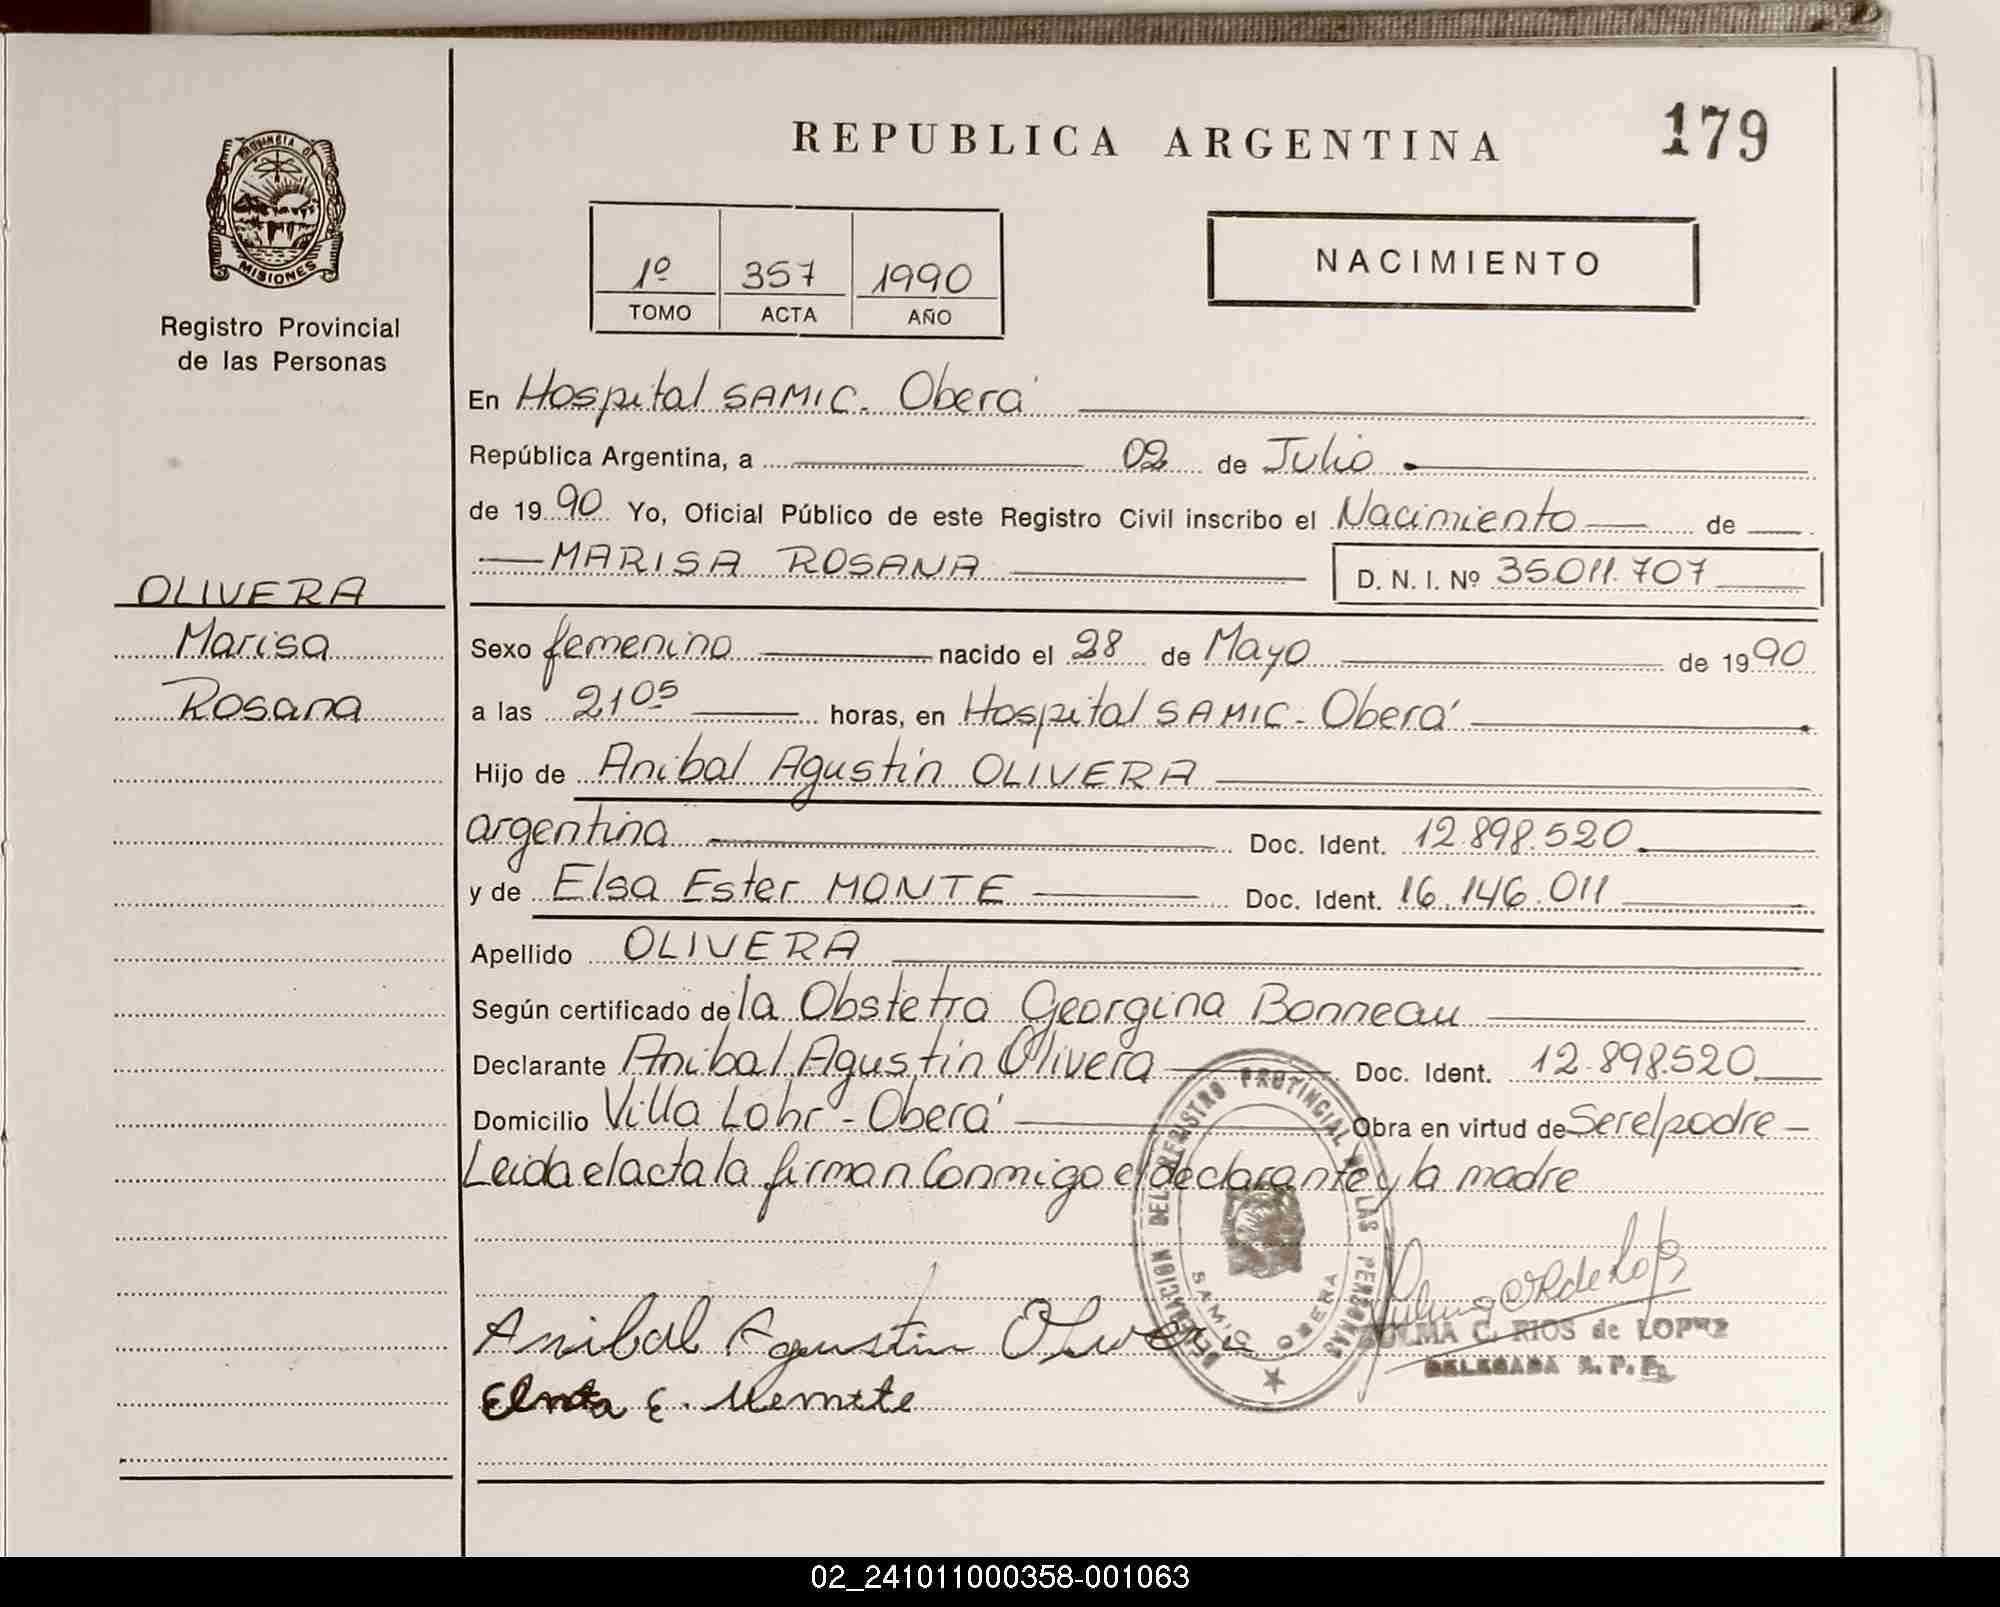 REPUBLICA ARGENTINA
179
PROVINCIA DE
MISIONES
Registro Provincial
de las Personas
1º 357 1990
TOMO ACTA AÑO
NACIMIENTO
En Hospital SAMIC. Oberá
República Argentina, a 02 de Julio
de 1990 Yo, Oficial Público de este Registro Civil inscribo el Nacimiento de
MARISA ROSANA D. N. I. Nº 35.011.707
OLIVERA
Marisa
Rosana
Sexo femenino nacido el 28 de Mayo de 1990
a las 21 05 horas, en Hospital SAMIC - Oberá
Hijo de Anibal Agustín OLIVERA
argentina Doc. Ident. 12.898.520
y de Elsa Ester MONTE Doc. Ident. 16.146.011
Apellido OLIVERA
Según certificado de la Obstetra Georgina Bonneau
Declarante Anibal Agustín Olivera Doc. Ident. 12.898.520
Domicilio Villa Lohr - Oberá Obra en virtud de Ser el padre -
Leida el acta la firman conmigo el declarante y la madre
DELEGACION DEL REGISTRO PROVINCIAL DE LAS PERSONAS
SAMIC OBERA
Anibal Agustin Olivera
ZULMA C. RIOS de LOPEZ
DELEGADA R. P. P.
E.
02_241011000358-001063